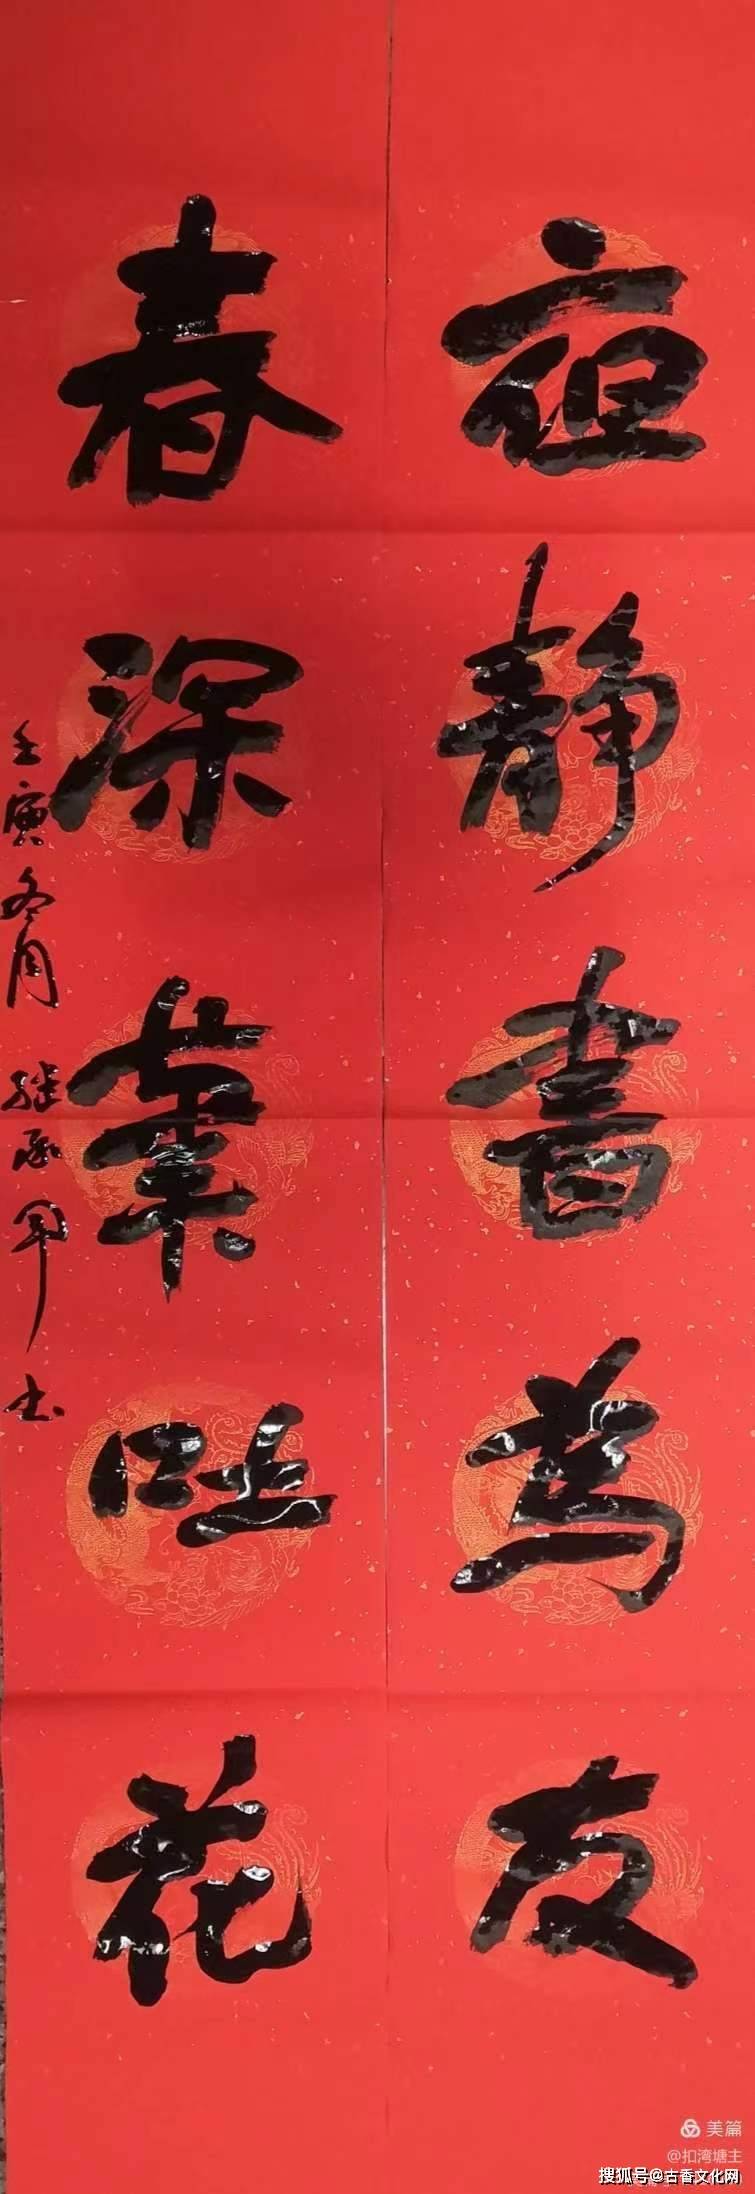 夜静書為友
春深葉吐花
壬寅冬月 继承军书
美篇
@扣湾塘主
搜狐号@古香文化网